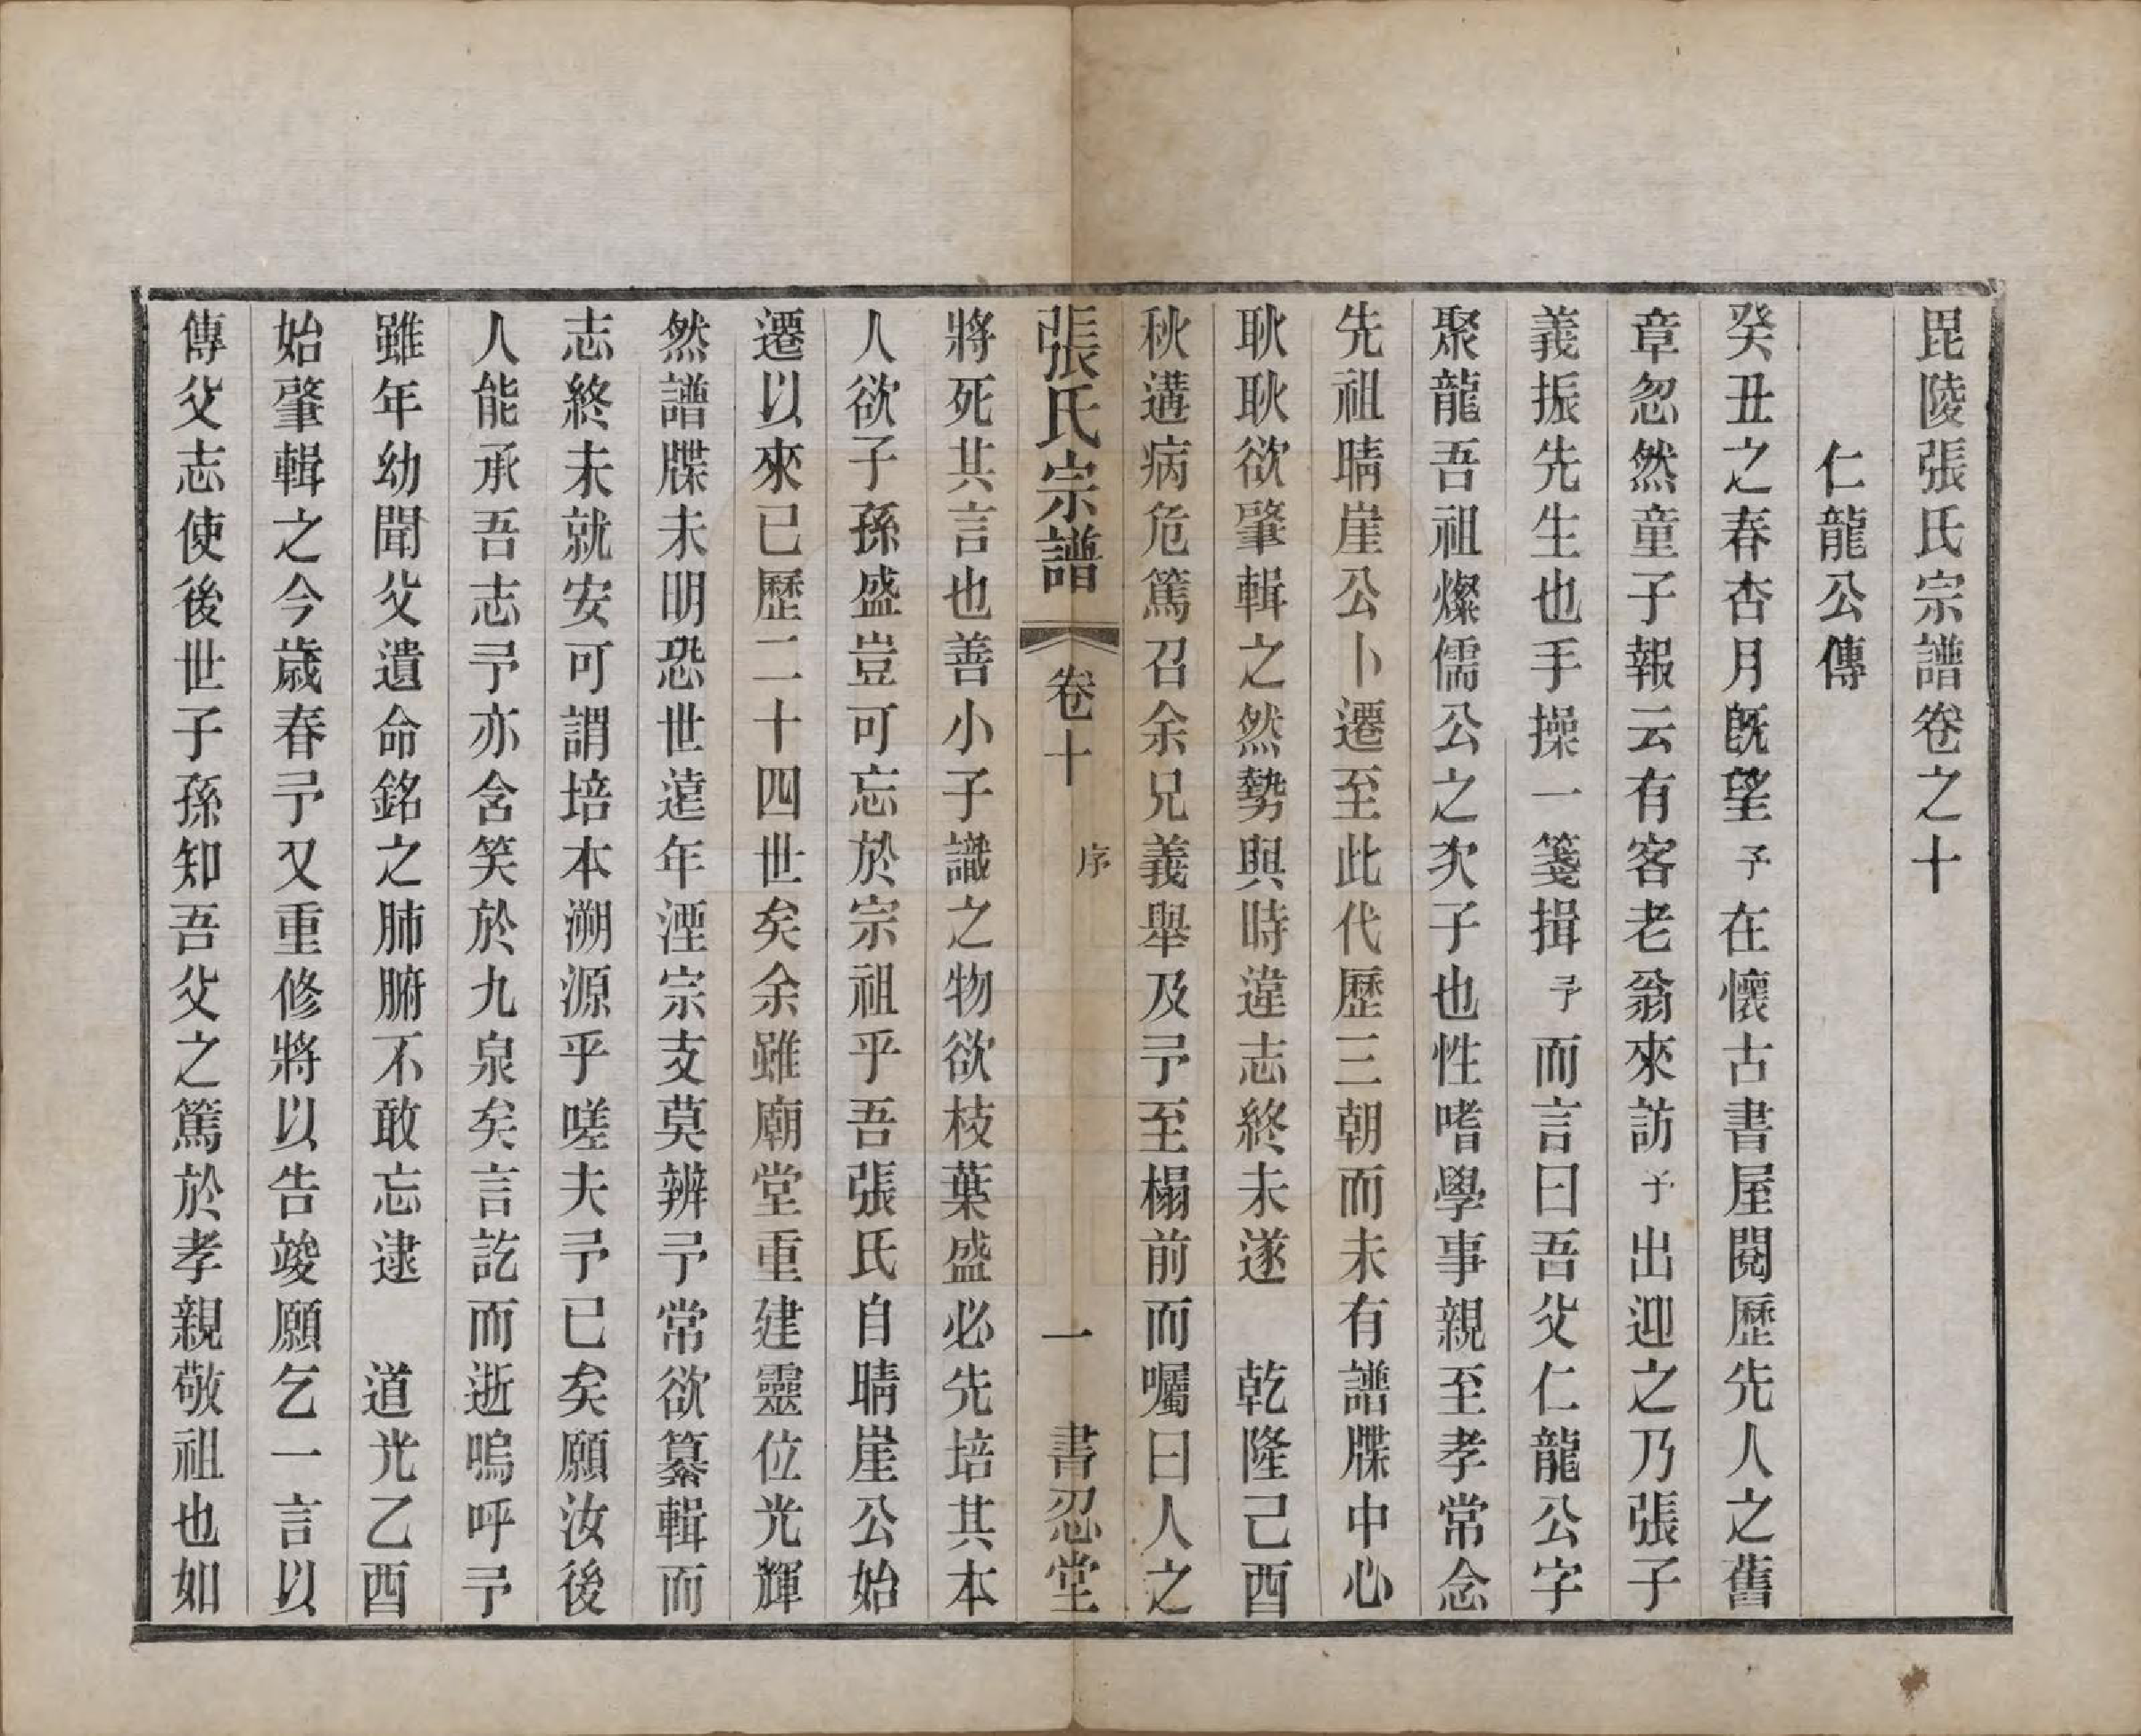 毘陵張氏宗譜卷之十
仁龍公傳
癸丑之春杏月旣望予在懷古書屋閱歷先人之舊
章忽然童子報云有客老翁來訪予出迎之乃張子
義振先生也手操一箋揖予而言曰吾父仁龍公字
聚龍吾祖燦儒公之次子也性嗜學事親至孝常念
先祖晴崖公卜遷至此代歷三朝而未有譜牒中心
耿耿欲肇輯之然勢與時違志終未遂　乾隆己酉
秋遘病危篤召余兄義舉及予至榻前而囑曰人之
張氏宗譜　卷十　序　一　書忍堂
將死其言也善小子識之物欲枝葉盛必先培其本
人欲子孫盛豈可忘於宗祖乎吾張氏自晴崖公始
遷以來已歷二十四世矣余雖廟堂重建靈位光輝
然譜牒未明恐世遠年湮宗支莫辨予常欲纂輯而
志終未就安可謂培本溯源乎嗟夫予已矣願汝後
人能承吾志予亦含笑於九泉矣言訖而逝嗚呼予
雖年幼聞父遺命銘之肺腑不敢忘逮　道光乙酉
始肇輯之今歲春予又重修將以告竣願乞一言以
傳父志使後世子孫知吾父之篤於孝親敬祖也如